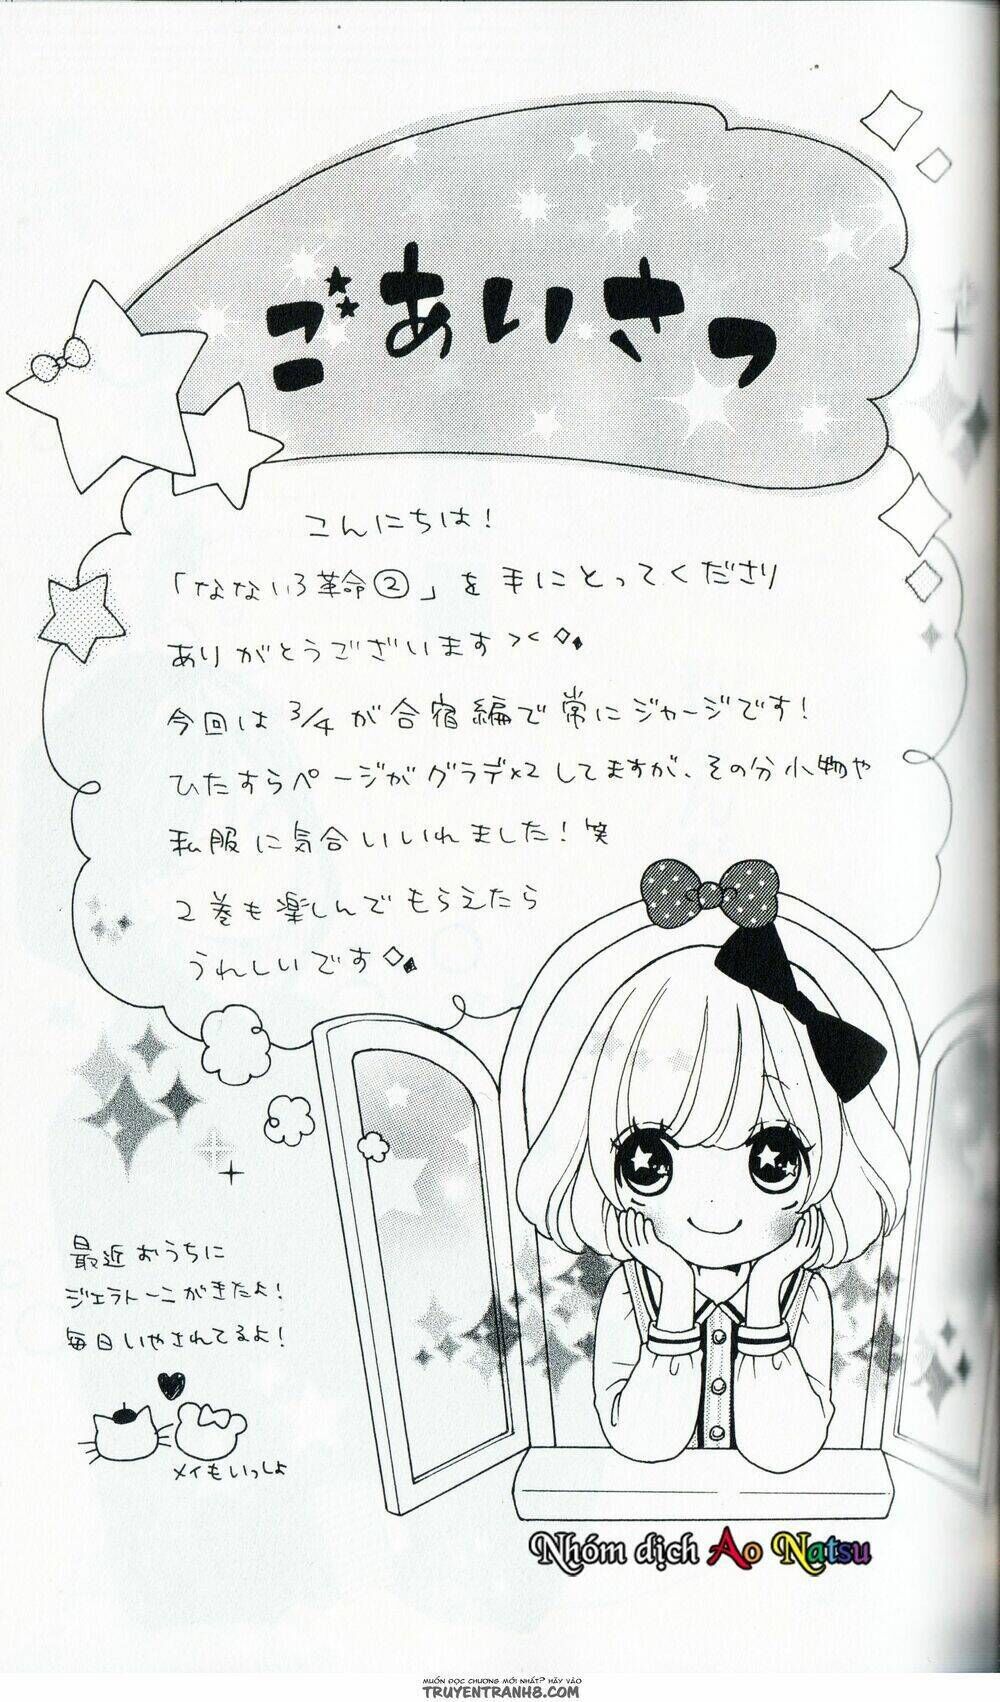 ごあいさつ
こんにちは！
「なないろ革命②」を手にとってくださり
ありがとうございます><
今回は3/4が合宿編で常にジャージです！
ひたすらページがグラデ×2してますが、その分小物や
私服に気合いいれました！笑
2巻も楽しんでもらえたら
うれしいです
最近おうちに
ジェラトーニがきたよ！
毎日いやされてるよ！
メイもいっしょ
Nhóm dịch Ao Natsu
MUỐN ĐỌC CHƯƠNG MỚI NHẤT? HÃY VÀO
TRUYENTRANH8.COM